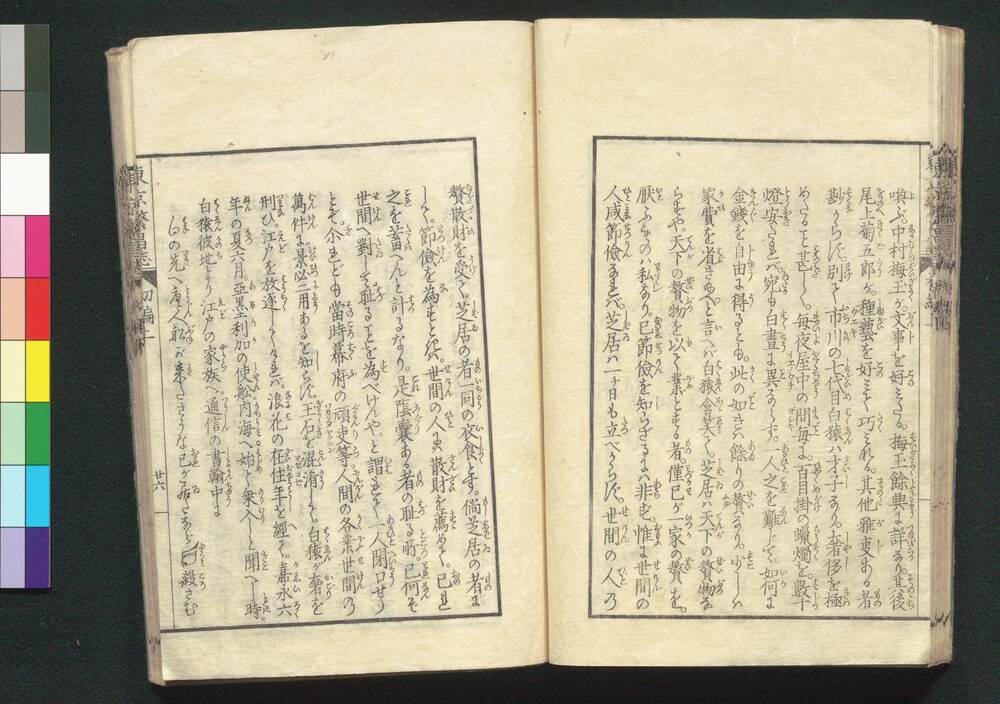 喚ぶ中村梅玉が犬事を好ミたる。梅玉餘興に詳なり其後
尾上菊五郎が。種藝を好ミて巧ミれる。其他雅事ある者
尠からず。別て市川の七代目白猿ハ才子なり。奢侈を極
めたること甚し。毎夜屋中の間毎に。百目掛の蠟燭を。數十
燈安てあれバ。宛も白晝に異ならず。一人之を難じて。如何に
金錢を自由に得るとも。此の如きハ餘りの贅なり。少しハ
家費を省き給へ。と言へバ白猿含笑て。芝居ハ天下の贅物な
らずや。天下の贅物を以て業とする者。僅己が一家の贅を。
厭ふものハ私なり。己節儉を知らざるにハ非ず。惟に世間の
人咸節儉なれバ。芝居ハ一チ日も立べからず。世間の人乃
贅散財を受て。芝居の者一同の衣食とす。倘芝居の者に
して。節儉を為すとハ。世間の人に散財を薦めて。己ㇾ
之を蓄へんと計るなり。是陰囊ある者の耻る所。己何ぞ
世間へ對して耻ることを為べけんや。と謂れて一人閉口せり
とぞ。尓れども當時幕府の頑吏等。人間の各業世間の
萬件に景必二用あると知らず。玉石を混淆して。白猿が奢を
刑ひ。江戸を放逐しくれバ。浪花の在住年を經て。嘉永六
年の夏六月。亞黑利加の使舩内海へ始て乗入しと聞へし時。
白猿彼地より江戸の家族へ通信の書翰中に
東京繁昌誌
初編一
廿六